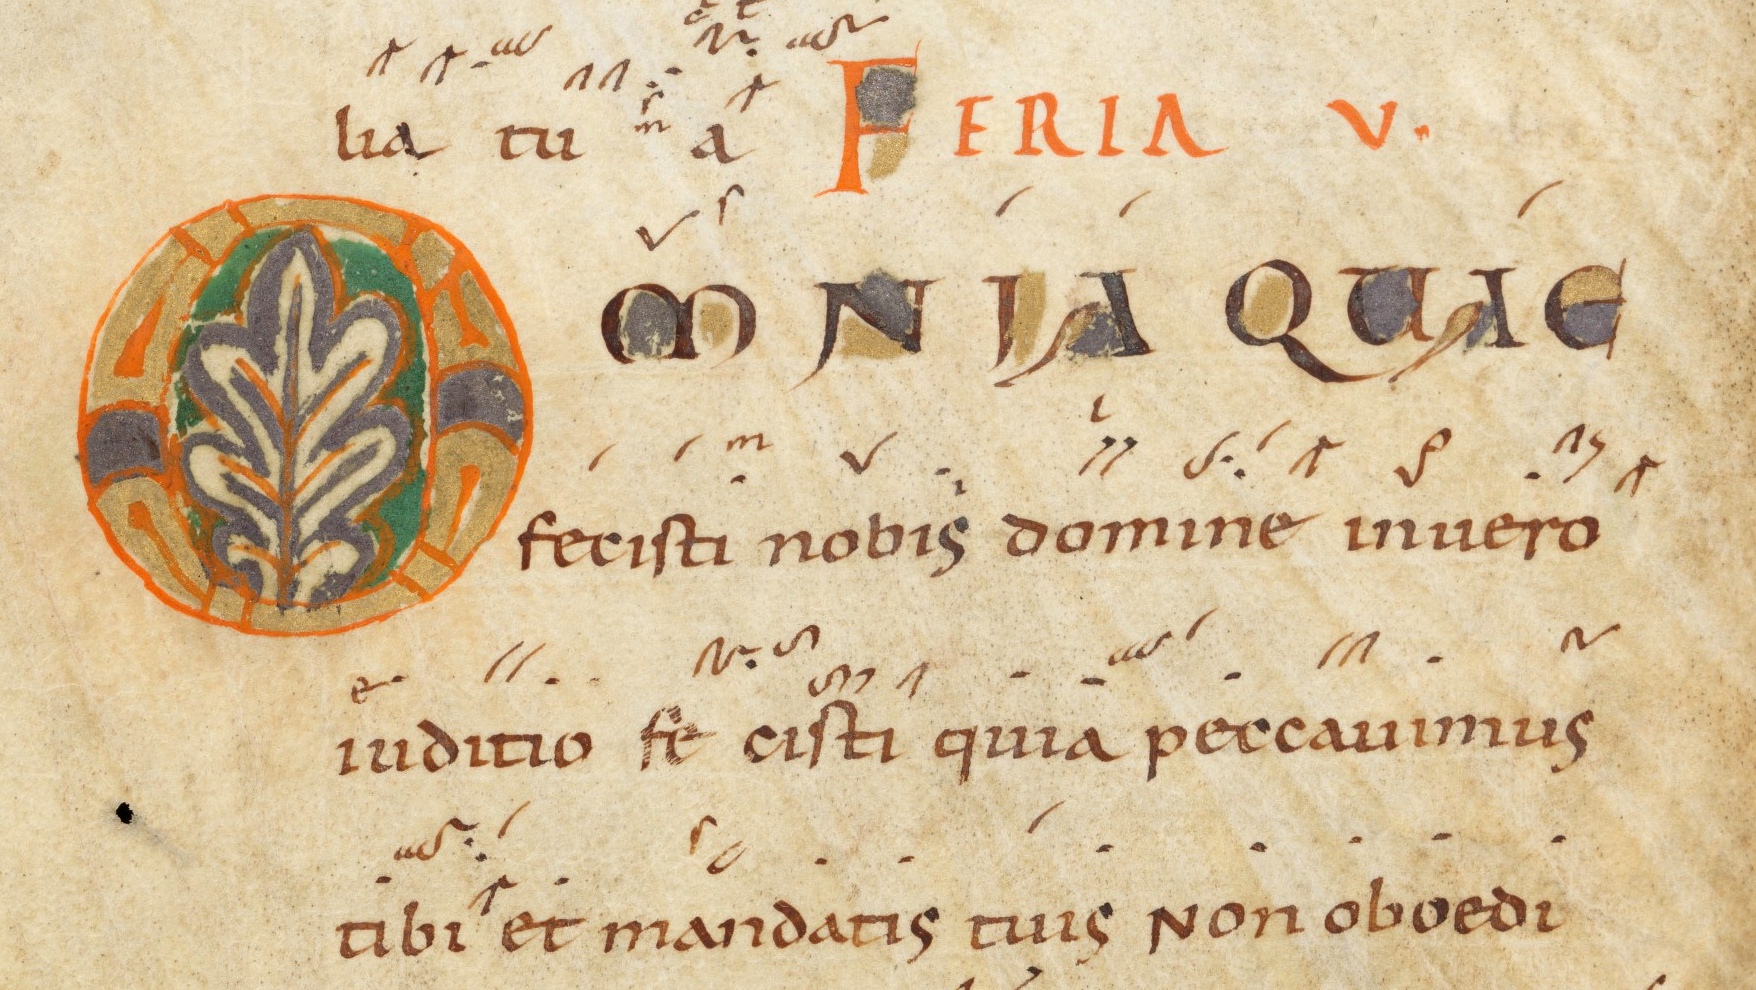 lia tu a FERIA V.
OMNIA QUAE
fecisti nobis domine in uero
iuditio fe cisti quia peccauimus
tibi et mandatis tuis Non oboedi